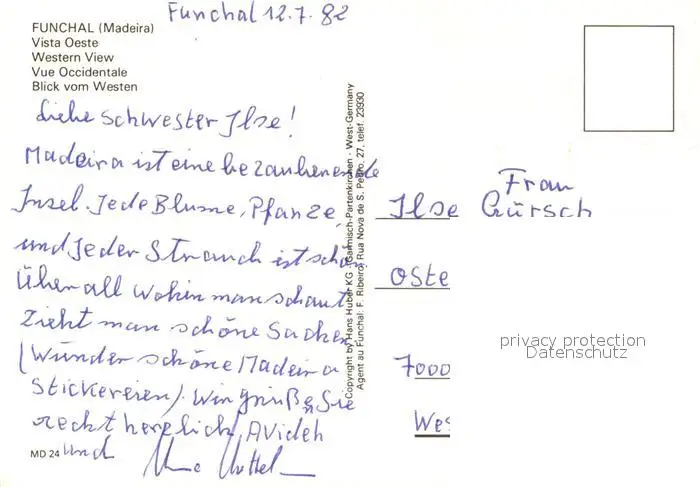 Funchal 12.7.82
FUNCHAL (Madeira)
Vista Oeste
Western View
Vue Occidentale
Blick vom Westen
Liebe Schwester Ilse!
Madeira ist eine bezaubernende
Insel. Jede Blume, Pflanze,
und Jeder Strauch ist schö
Überall wohin man schaut
Zieht man schöne Sachen
(Wunderschöne Madeira
Stickereien). Wir grüßen Sie
recht herzlich, Avideh
und
MD 24
Copyright by Hans Huber KG - Garmisch-Partenkirchen - West-Germany
Agent au Funchal: F. Ribeiro, Rua Nova de S. Pedro, 27, telef. 23930
Frau
Ilse Gürsch
Oste
7000
Wes
privacy protection
Datenschutz